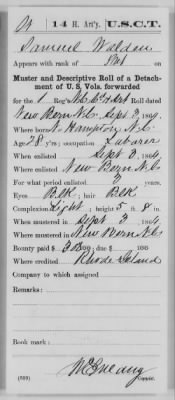 14 H. Art'y. U.S.C.T.
Samuel Walden
Appears with rank of Pvt on
Muster and Descriptive Roll of a Detachment
of U. S. Vols. forwarded
for the 1 Reg't N.C. C H Art Roll dated
New Bern N.C. Sept 3, 1864.
Where born N. Hampton, N.C.
Age 28 y'rs; occupation Laborer
When enlisted Sept 3, 1864.
Where enlisted New Bern N.C.
For what period enlisted 3 years.
Eyes Blk; hair Blk
Complexion Light; height 5 ft. 8 in.
When mustered in Sept 3, 1864
Where mustered in New Bern N.C.
Bounty paid $ 100; due $ 100
Where credited Rhode Island
Company to which assigned
Remarks:
Book mark:
(339) Copyist.